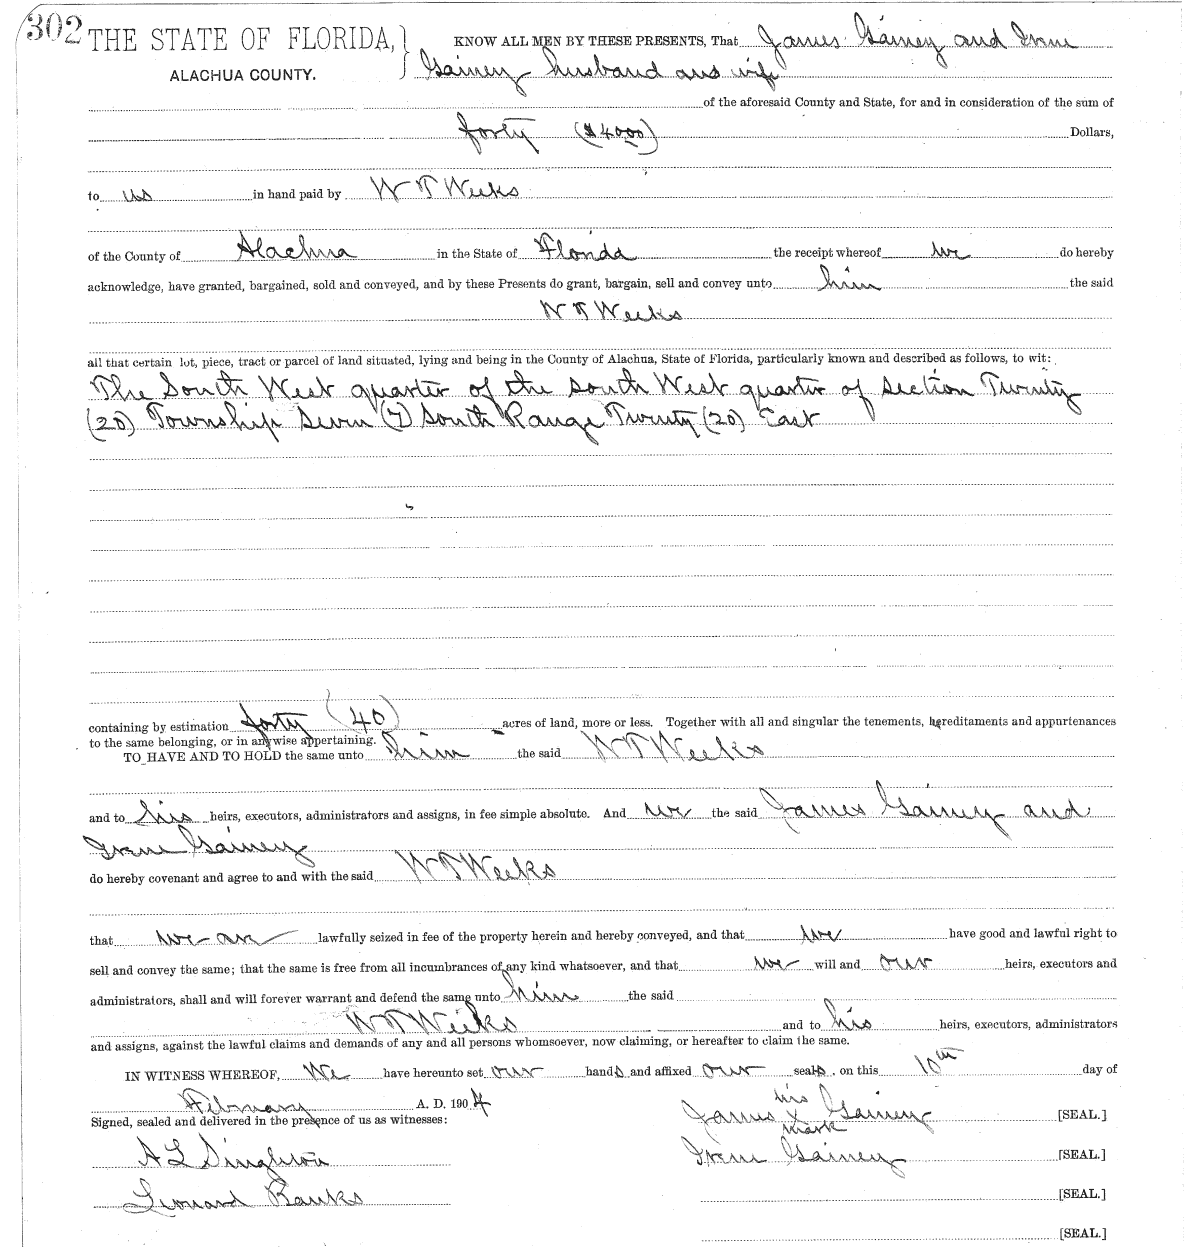 302
THE STATE OF FLORIDA, KNOW ALL MEN BY THESE PRESENTS, That James Gainey and Irene
ALACHUA COUNTY. Gainey husband and wife
of the aforesaid County and State, for and in consideration of the sum of
forty ($4000) Dollars,
to us in hand paid by W T Weeks
of the County of Alachua in the State of Florida the receipt whereof we do hereby
acknowledge, have granted, bargained, sold and conveyed, and by these Presents do grant, bargain, sell and convey unto him the said
W T Weeks
all that certain lot, piece, tract or parcel of land situated, lying and being in the County of Alachua, State of Florida, particularly known and described as follows, to wit:
The South West quarter of the South West quarter of section Twenty
(20) Township Seven (7) South Range Twenty (20) East
containing by estimation forty (40) acres of land, more or less. Together with all and singular the tenements, hereditaments and appurtenances
to the same belonging, or in anywise appertaining.
TO HAVE AND TO HOLD the same unto him the said W T Weeks
and to his heirs, executors, administrators and assigns, in fee simple absolute. And we the said James Gainey and
Irene Gainey
do hereby covenant and agree to and with the said W T Weeks
that we are lawfully seized in fee of the property herein and hereby conveyed, and that we have good and lawful right to
sell and convey the same; that the same is free from all incumbrances of any kind whatsoever, and that we will and our heirs, executors and
administrators, shall and will forever warrant and defend the same unto him the said
W T Weeks and to his heirs, executors, administrators
and assigns, against the lawful claims and demands of any and all persons whomsoever, now claiming, or hereafter to claim the same.
IN WITNESS WHEREOF, We have hereunto set our hands and affixed our seals, on this 10th day of
February A. D. 1904
Signed, sealed and delivered in the presence of us as witnesses:
his
James X Gainey [SEAL.]
mark
A L Singleton Irene Gainey [SEAL.]
Leonard Banks [SEAL.]
[SEAL.]